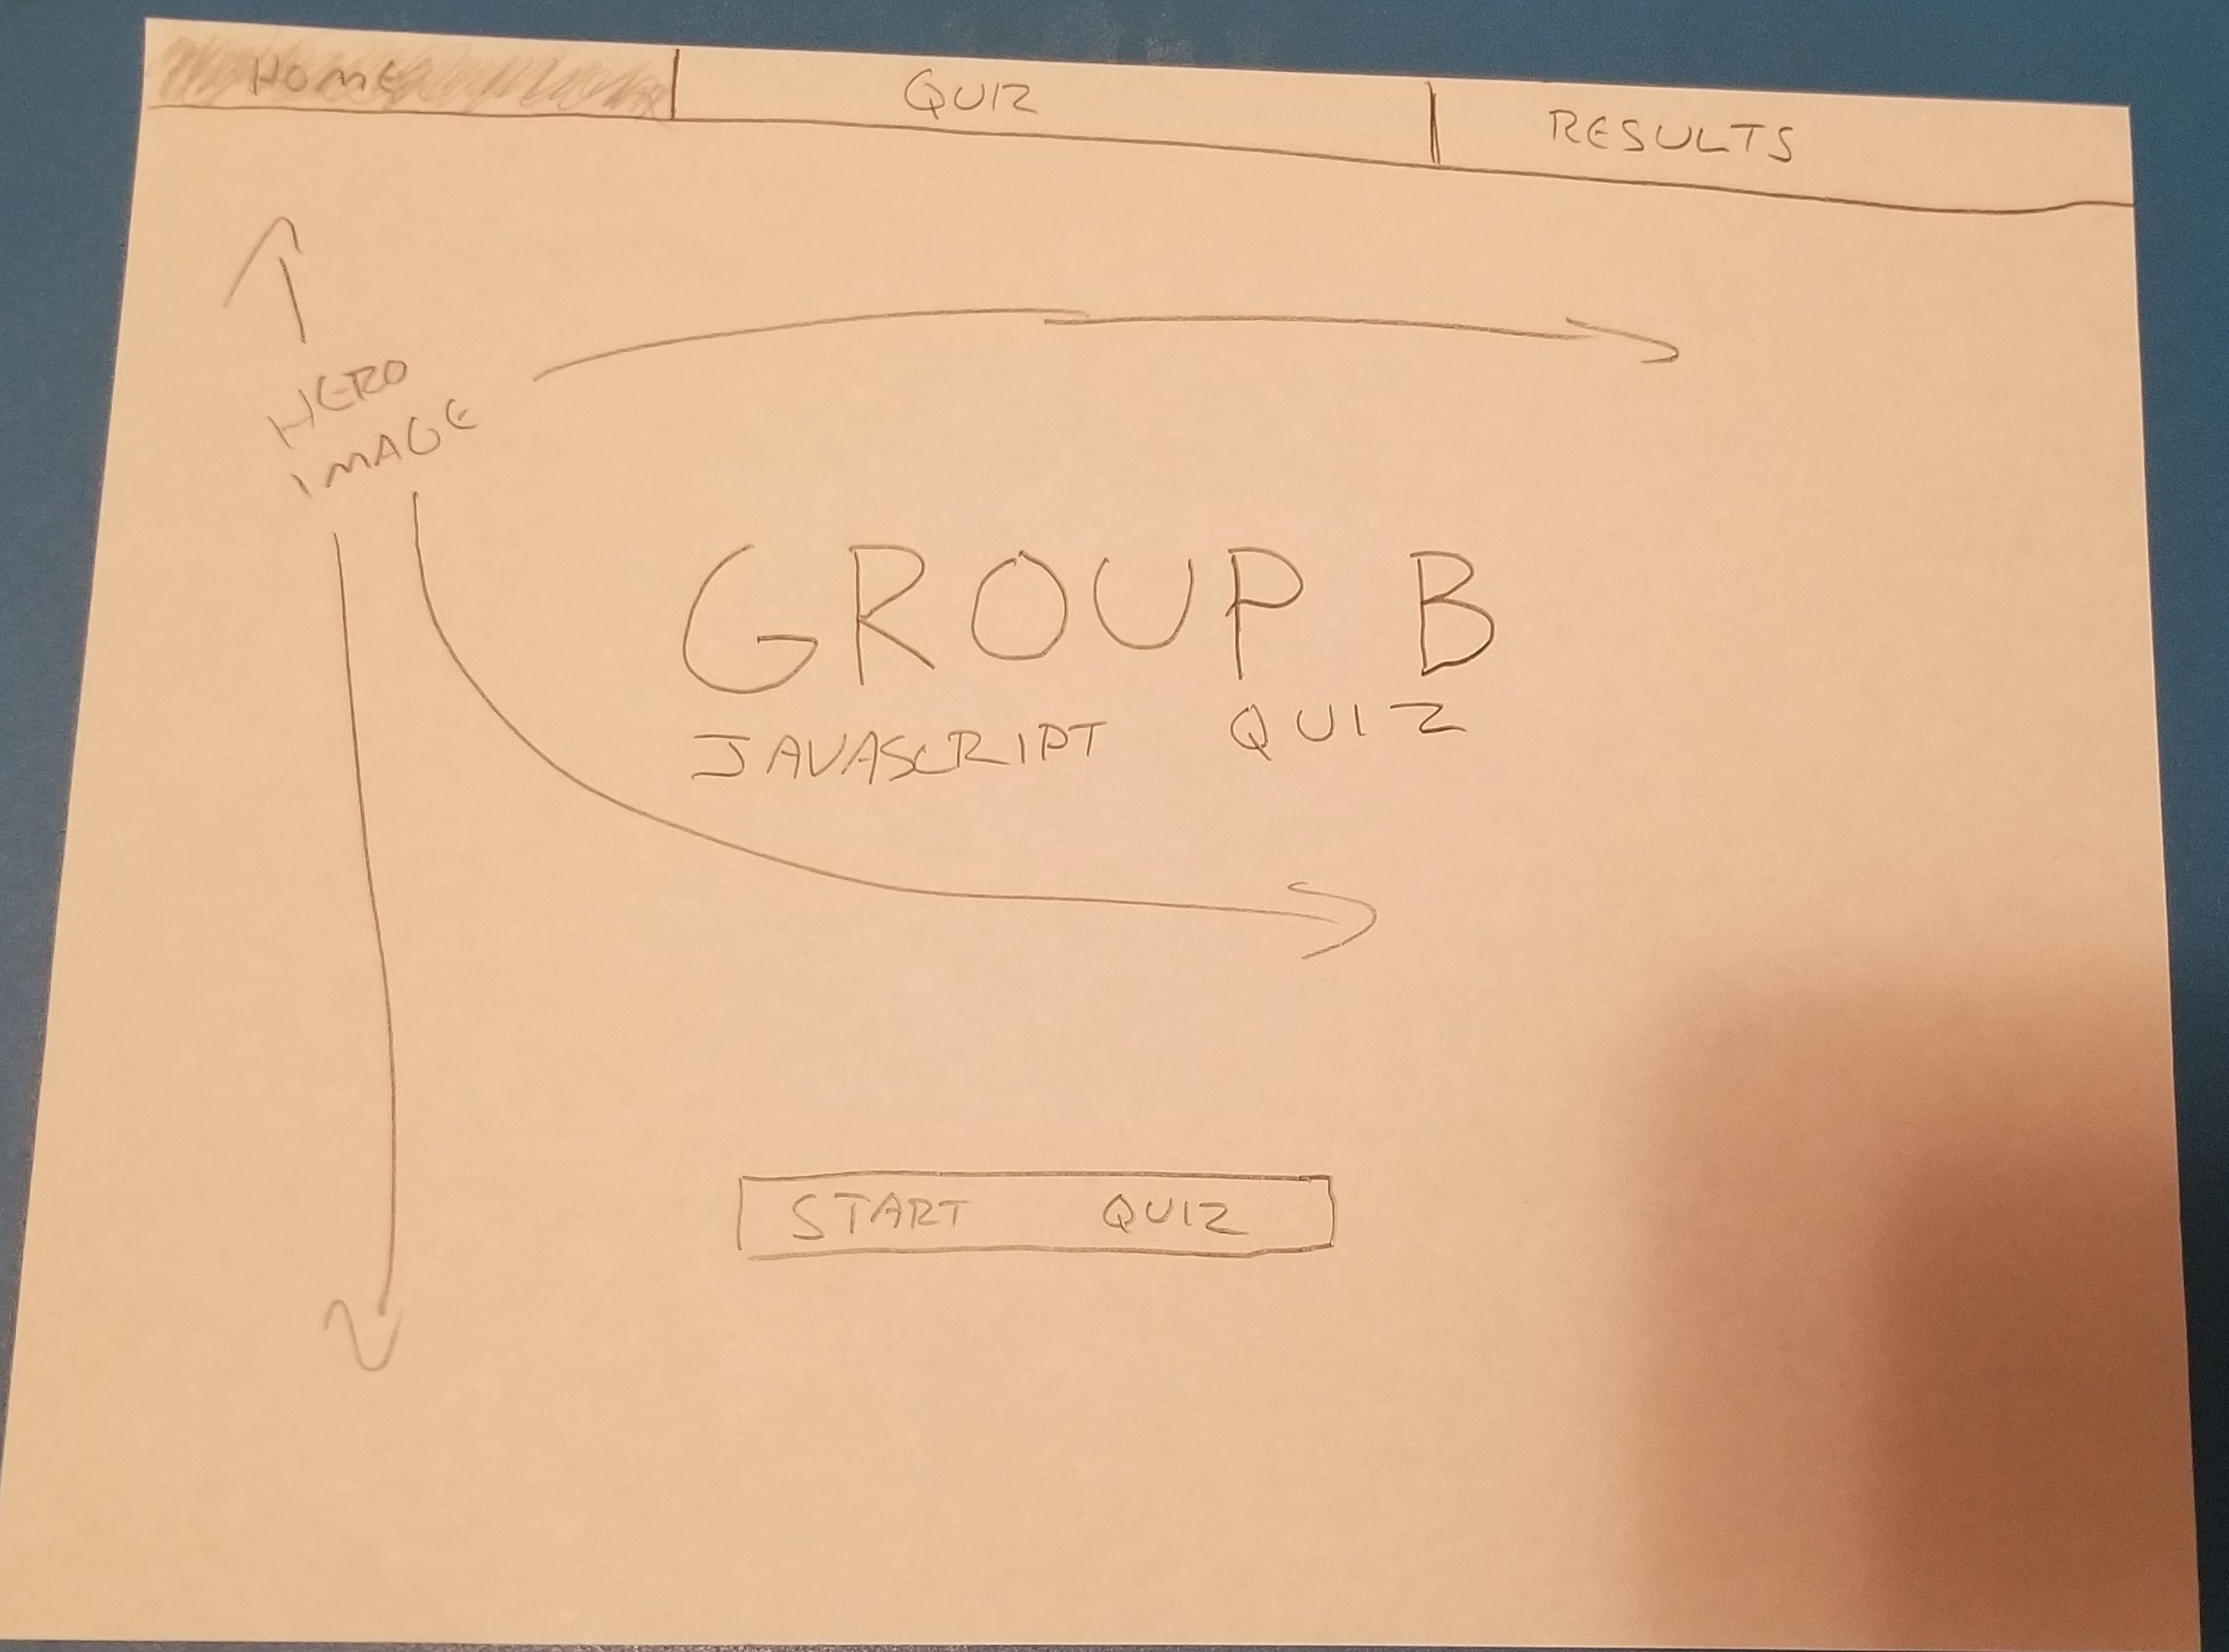 HOME
QUIZ
RESULTS
HERO
IMAGE
GROUP B
JAVASCRIPT QUIZ
START QUIZ